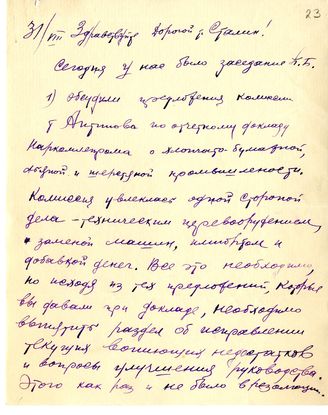 23
31/VIII Здравствуйте Дорогой т. Сталин!
Сегодня у нас было заседание П.Б.
1) Обсудили предложения комиссии
т Антипова по отчетному докладу
Наркомлегпрома о хлопчато-бумажной,
льняной и шерстяной промышленности.
Комиссия увлекает одной стороной
дела – техническим перевооружением,
заменой машин, импортом и
добавкой денег. Все это необходимо,
но исходя из тех предложений, которые
вы давали при докладе, необходимо
выпятить раздел об исправлении
текущих вопиющих недостатков
и вопросы улучшения руководства.
Этого как раз и не было в резолюции.